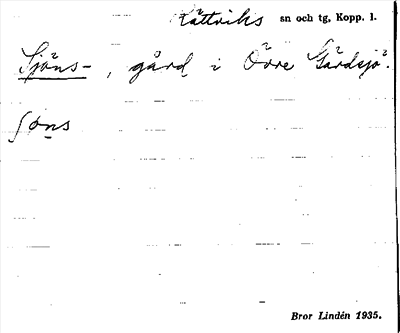 Rättviks sn och tg, Kopp. l.
Sjöns-, gård i Övre Gärdsjö.
ʃöns
Bror Lindén 1935.